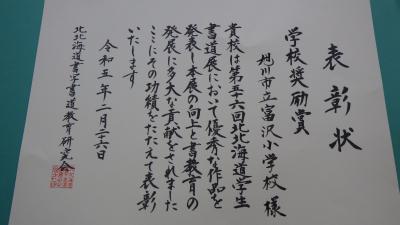 表彰状
学校奨励賞
旭川市立富沢小学校 様
貴校は第五十六回北北海道学生
書道展において優秀な作品を
発表し本展の向上と書教育の
発展に多大な貢献をされました
ここにその功績をたたえて表彰
いたします
令和五年二月二十六日
北北海道書写書道教育研究会